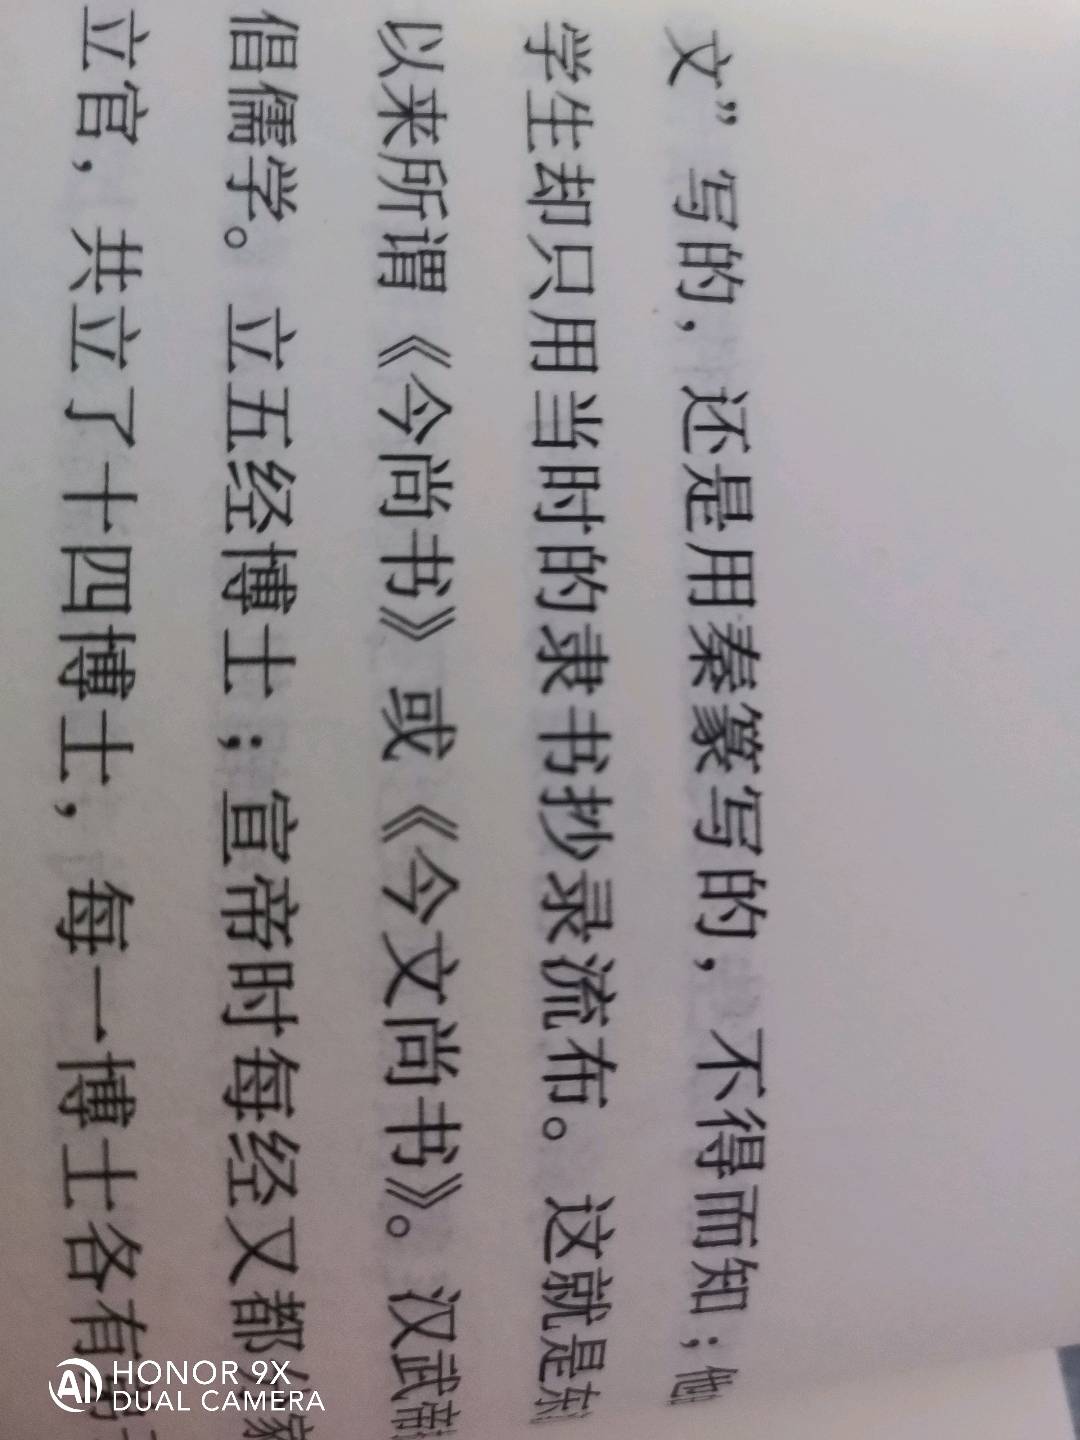 文”写的，还是用秦篆写的，不得而知；他
学生却只用当时的隶书抄录流布。这就是东
以来所谓《今尚书》或《今文尚书》。汉武帝
倡儒学。立五经博士；宣帝时每经又都分家
立官，共立了十四博士，每一博士各有
HONOR 9X
DUAL CAMERA